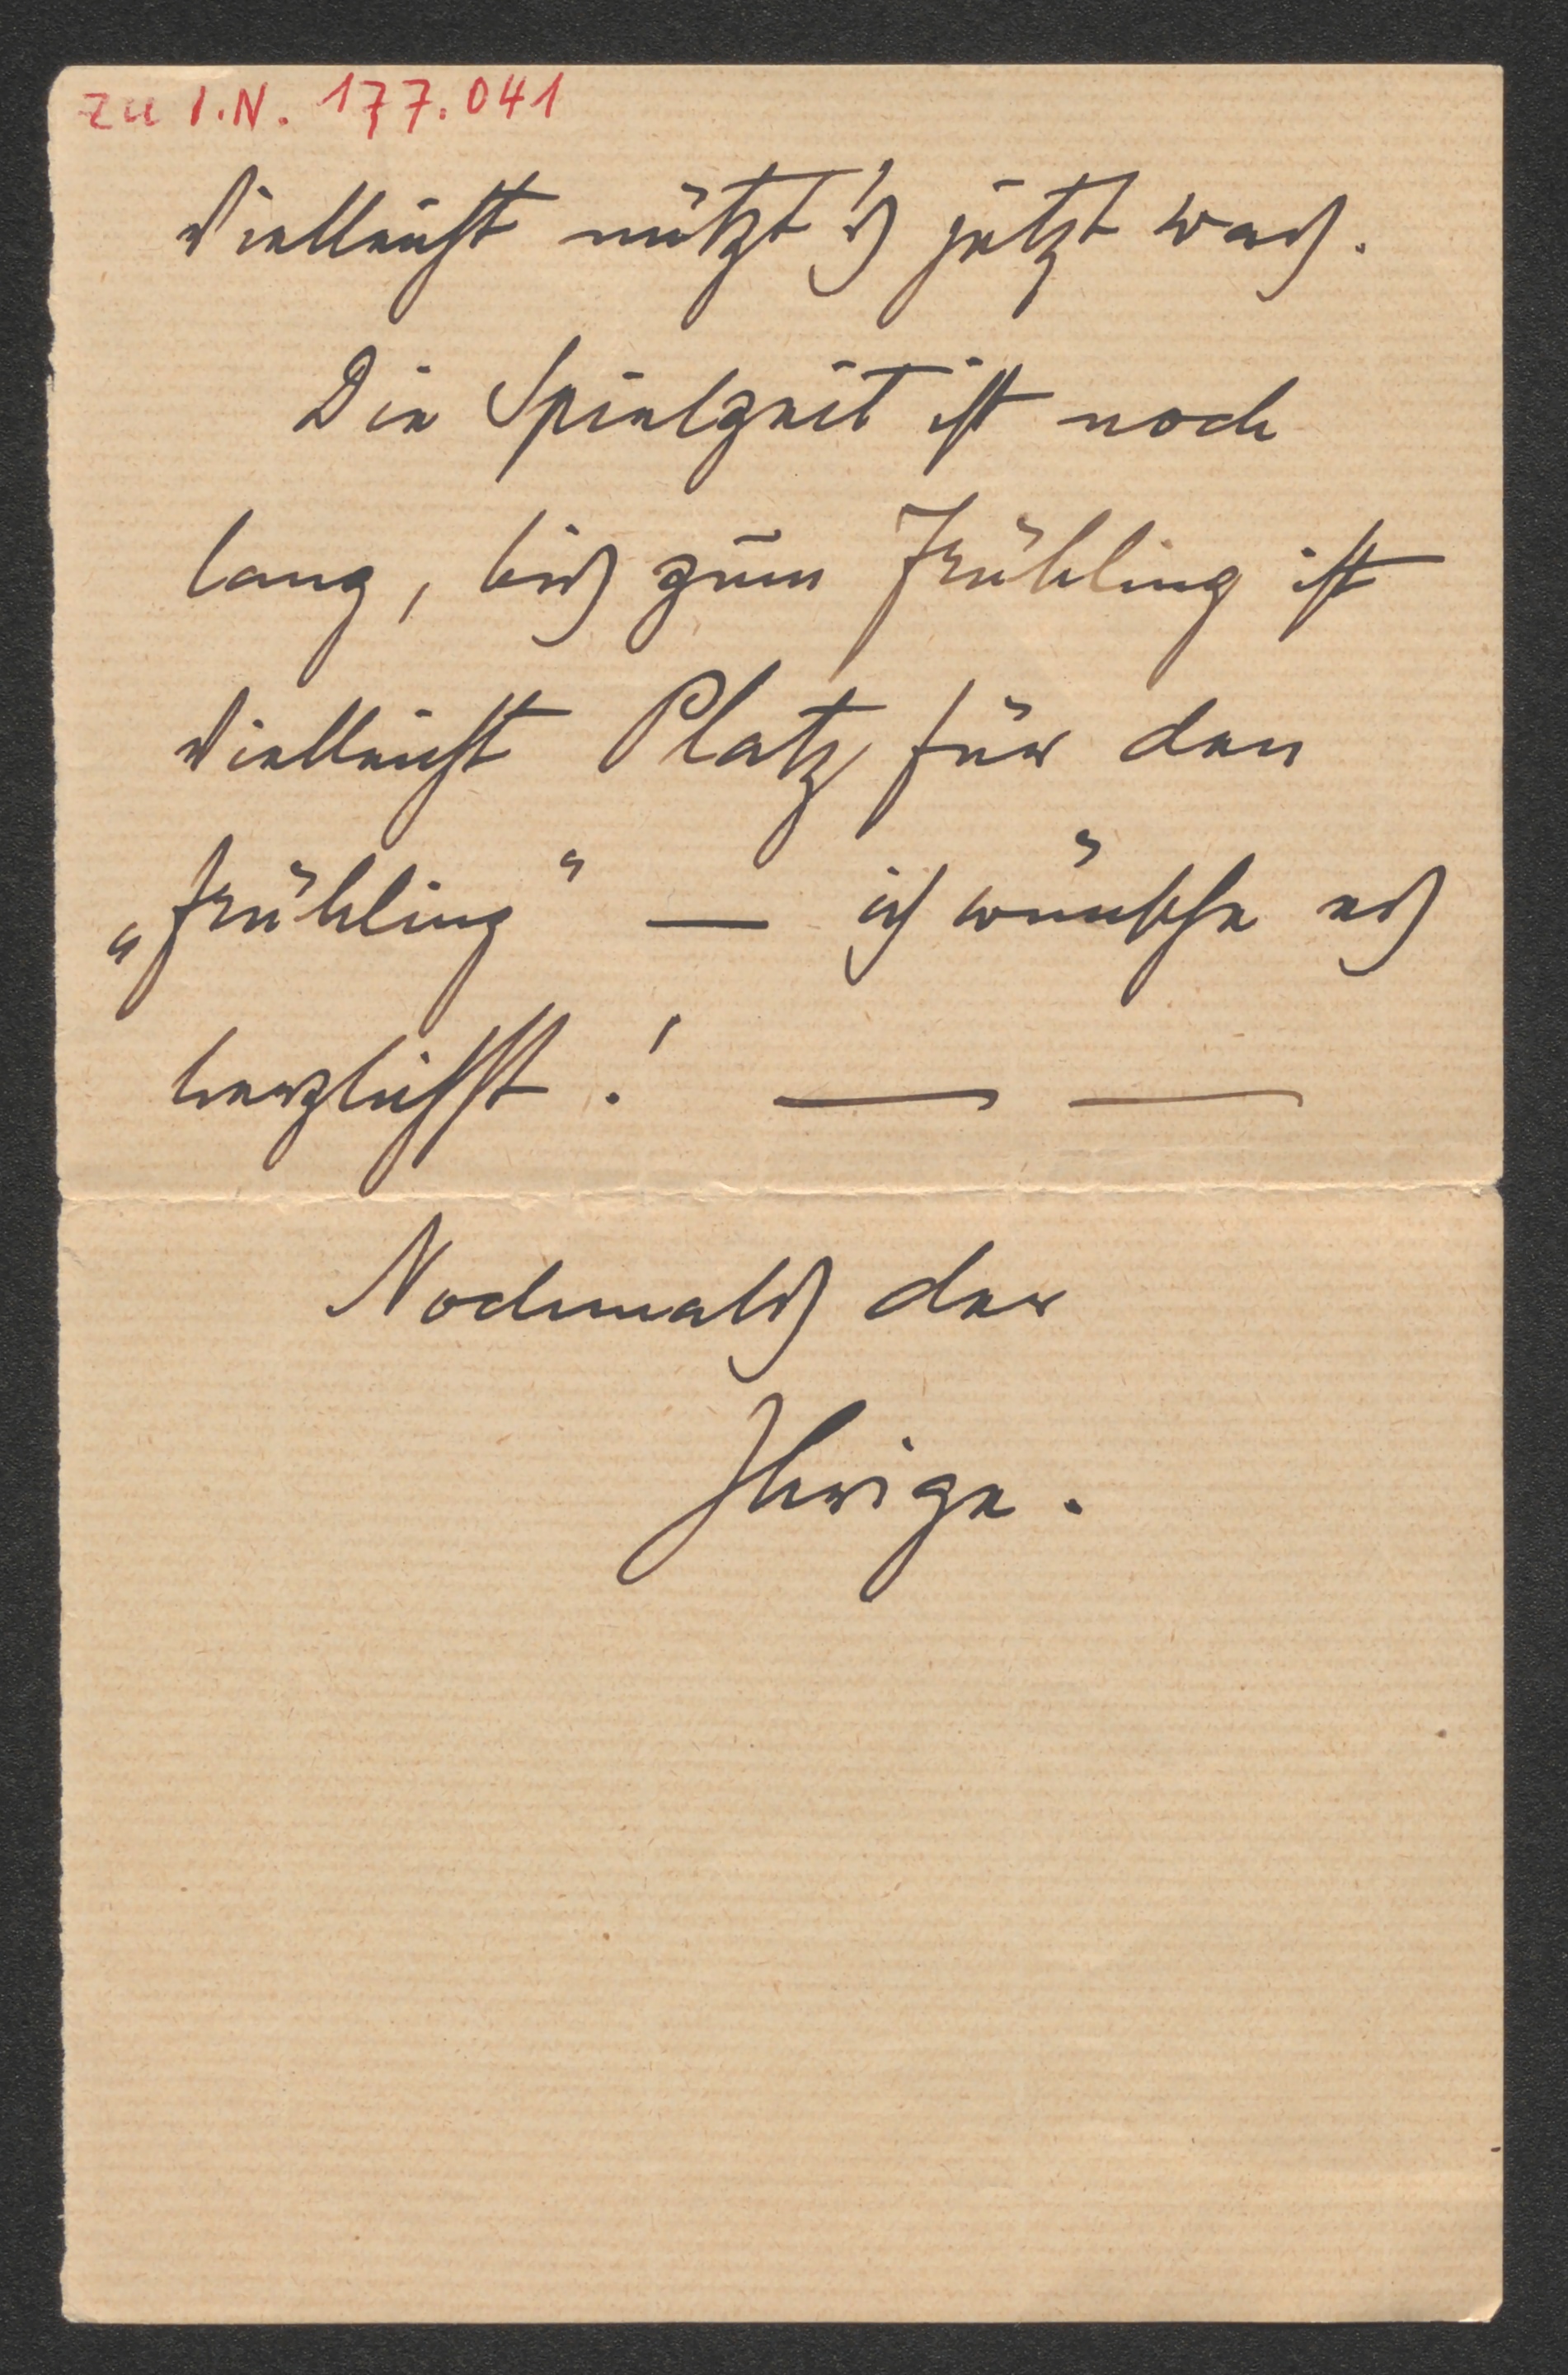 zu I.N. 177.041
Vielleicht nützt's jetzt was.
Die Spielzeit ist noch
lang, bis zum Frühling ist
vielleicht Platz für den
„Frühling" — ich wünsche es
herzlichst! — —
Nochmals der
Ihrige.